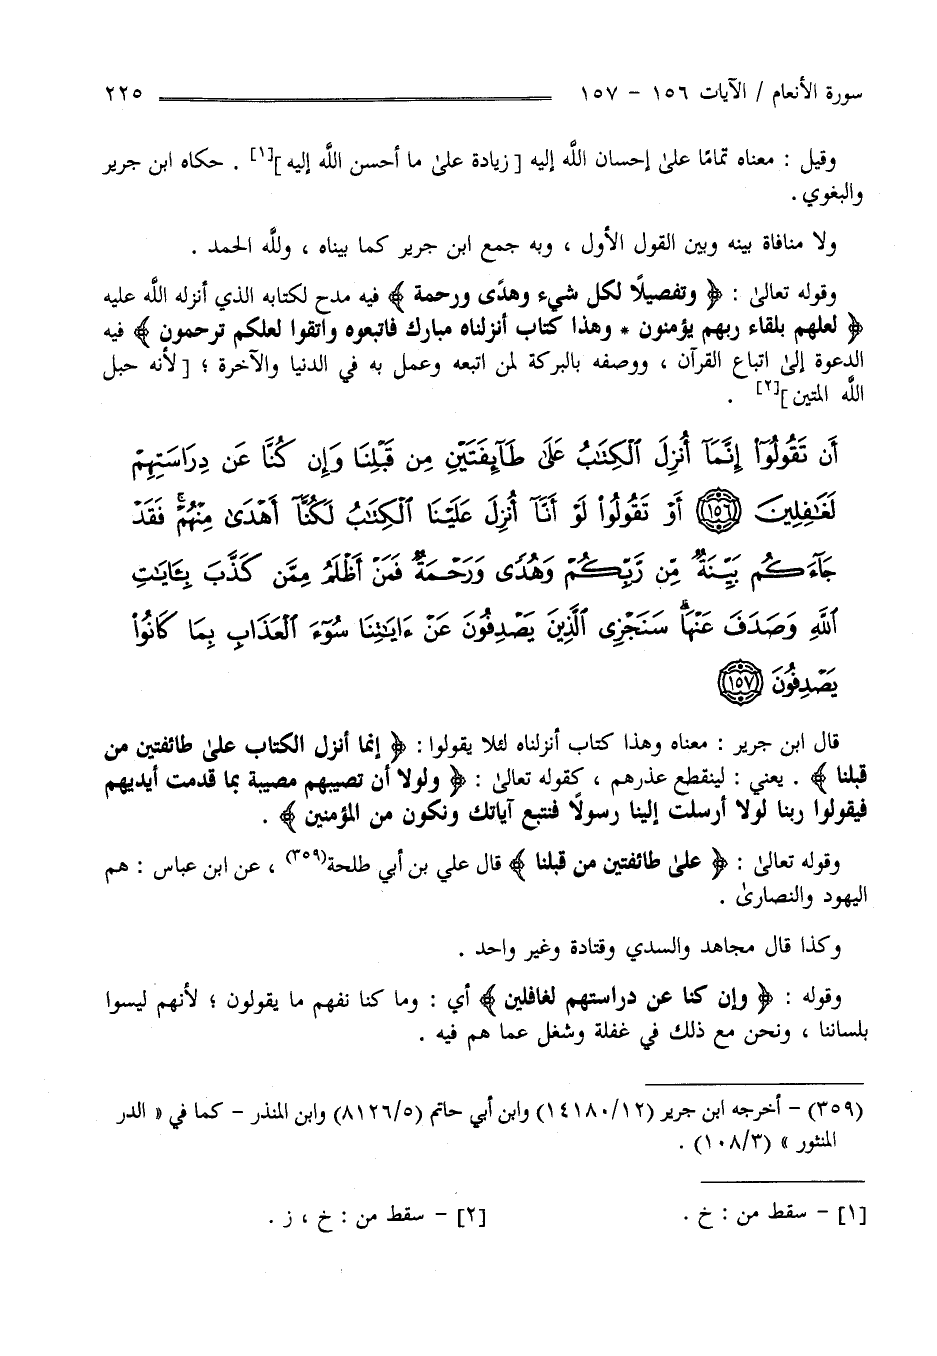 سورة الأنعام / الآيات ١٥٦ - ١٥٧ ٢٢٥
وقيل : معناه تمامًا علىٰ إحسان اللَّه إليه [ زيادة علىٰ ما أحسن اللَّه إليه ][١] . حكاه ابن جرير
والبغوي .
ولا منافاة بينه وبين القول الأول ، وبه جمع ابن جرير كما بيناه ، وللَّه الحمد .
وقوله تعالىٰ : ﴿ وتفصيلًا لكل شيء وهدًى ورحمة ﴾ فيه مدح لكتابه الذي أنزله اللَّه عليه
﴿ لعلهم بلقاء ربهم يؤمنون * وهذا كتاب أنزلناه مبارك فاتبعوه واتقوا لعلكم ترحمون ﴾ فيه
الدعوة إلىٰ اتباع القرآن ، ووصفه بالبركة لمن اتبعه وعمل به في الدنيا والآخرة ؛ [ لأنه حبل
اللَّه المتين ][٢] .
أَن تَقُولُوٓا۟ إِنَّمَآ أُنزِلَ ٱلْكِتَٰبُ عَلَىٰ طَآئِفَتَيْنِ مِن قَبْلِنَا وَإِن كُنَّا عَن دِرَاسَتِهِمْ
لَغَٰفِلِينَ ١٥٦ أَوْ تَقُولُوا۟ لَوْ أَنَّآ أُنزِلَ عَلَيْنَا ٱلْكِتَٰبُ لَكُنَّآ أَهْدَىٰ مِنْهُمْ ۚ فَقَدْ
جَآءَكُم بَيِّنَةٌ مِّن رَّبِّكُمْ وَهُدًى وَرَحْمَةٌ ۚ فَمَنْ أَظْلَمُ مِمَّن كَذَّبَ بِـَٔايَٰتِ
ٱللَّهِ وَصَدَفَ عَنْهَا ۗ سَنَجْزِى ٱلَّذِينَ يَصْدِفُونَ عَنْ ءَايَٰتِنَا سُوٓءَ ٱلْعَذَابِ بِمَا كَانُوا۟
يَصْدِفُونَ ١٥٧
قال ابن جرير : معناه وهذا كتاب أنزلناه لئلا يقولوا : ﴿ إنما أنزل الكتاب علىٰ طائفتين من
قبلنا ﴾ . يعني : لينقطع عذرهم ، كقوله تعالىٰ : ﴿ ولولا أن تصيبهم مصيبة بما قدمت أيديهم
فيقولوا ربنا لولا أرسلت إلينا رسولًا فنتبع آياتك ونكون من المؤمنين ﴾ .
وقوله تعالىٰ : ﴿ علىٰ طائفتين من قبلنا ﴾ قال علي بن أبي طلحة(٣٥٩) ، عن ابن عباس : هم
اليهود والنصارىٰ .
وكذا قال مجاهد والسدي وقتادة وغير واحد .
وقوله : ﴿ وإن كنا عن دراستهم لغافلين ﴾ أي : وما كنا نفهم ما يقولون ؛ لأنهم ليسوا
بلساننا ، ونحن مع ذلك في غفلة وشغل عما هم فيه .
(٣٥٩) - أخرجه ابن جرير (١٤١٨٠/١٢) وابن أبي حاتم (٨١٢٦/٥) وابن المنذر - كما في « الدر
المنثور » (١٠٨/٣) .
[١] - سقط من : خ . [٢] - سقط من : خ ، ز .